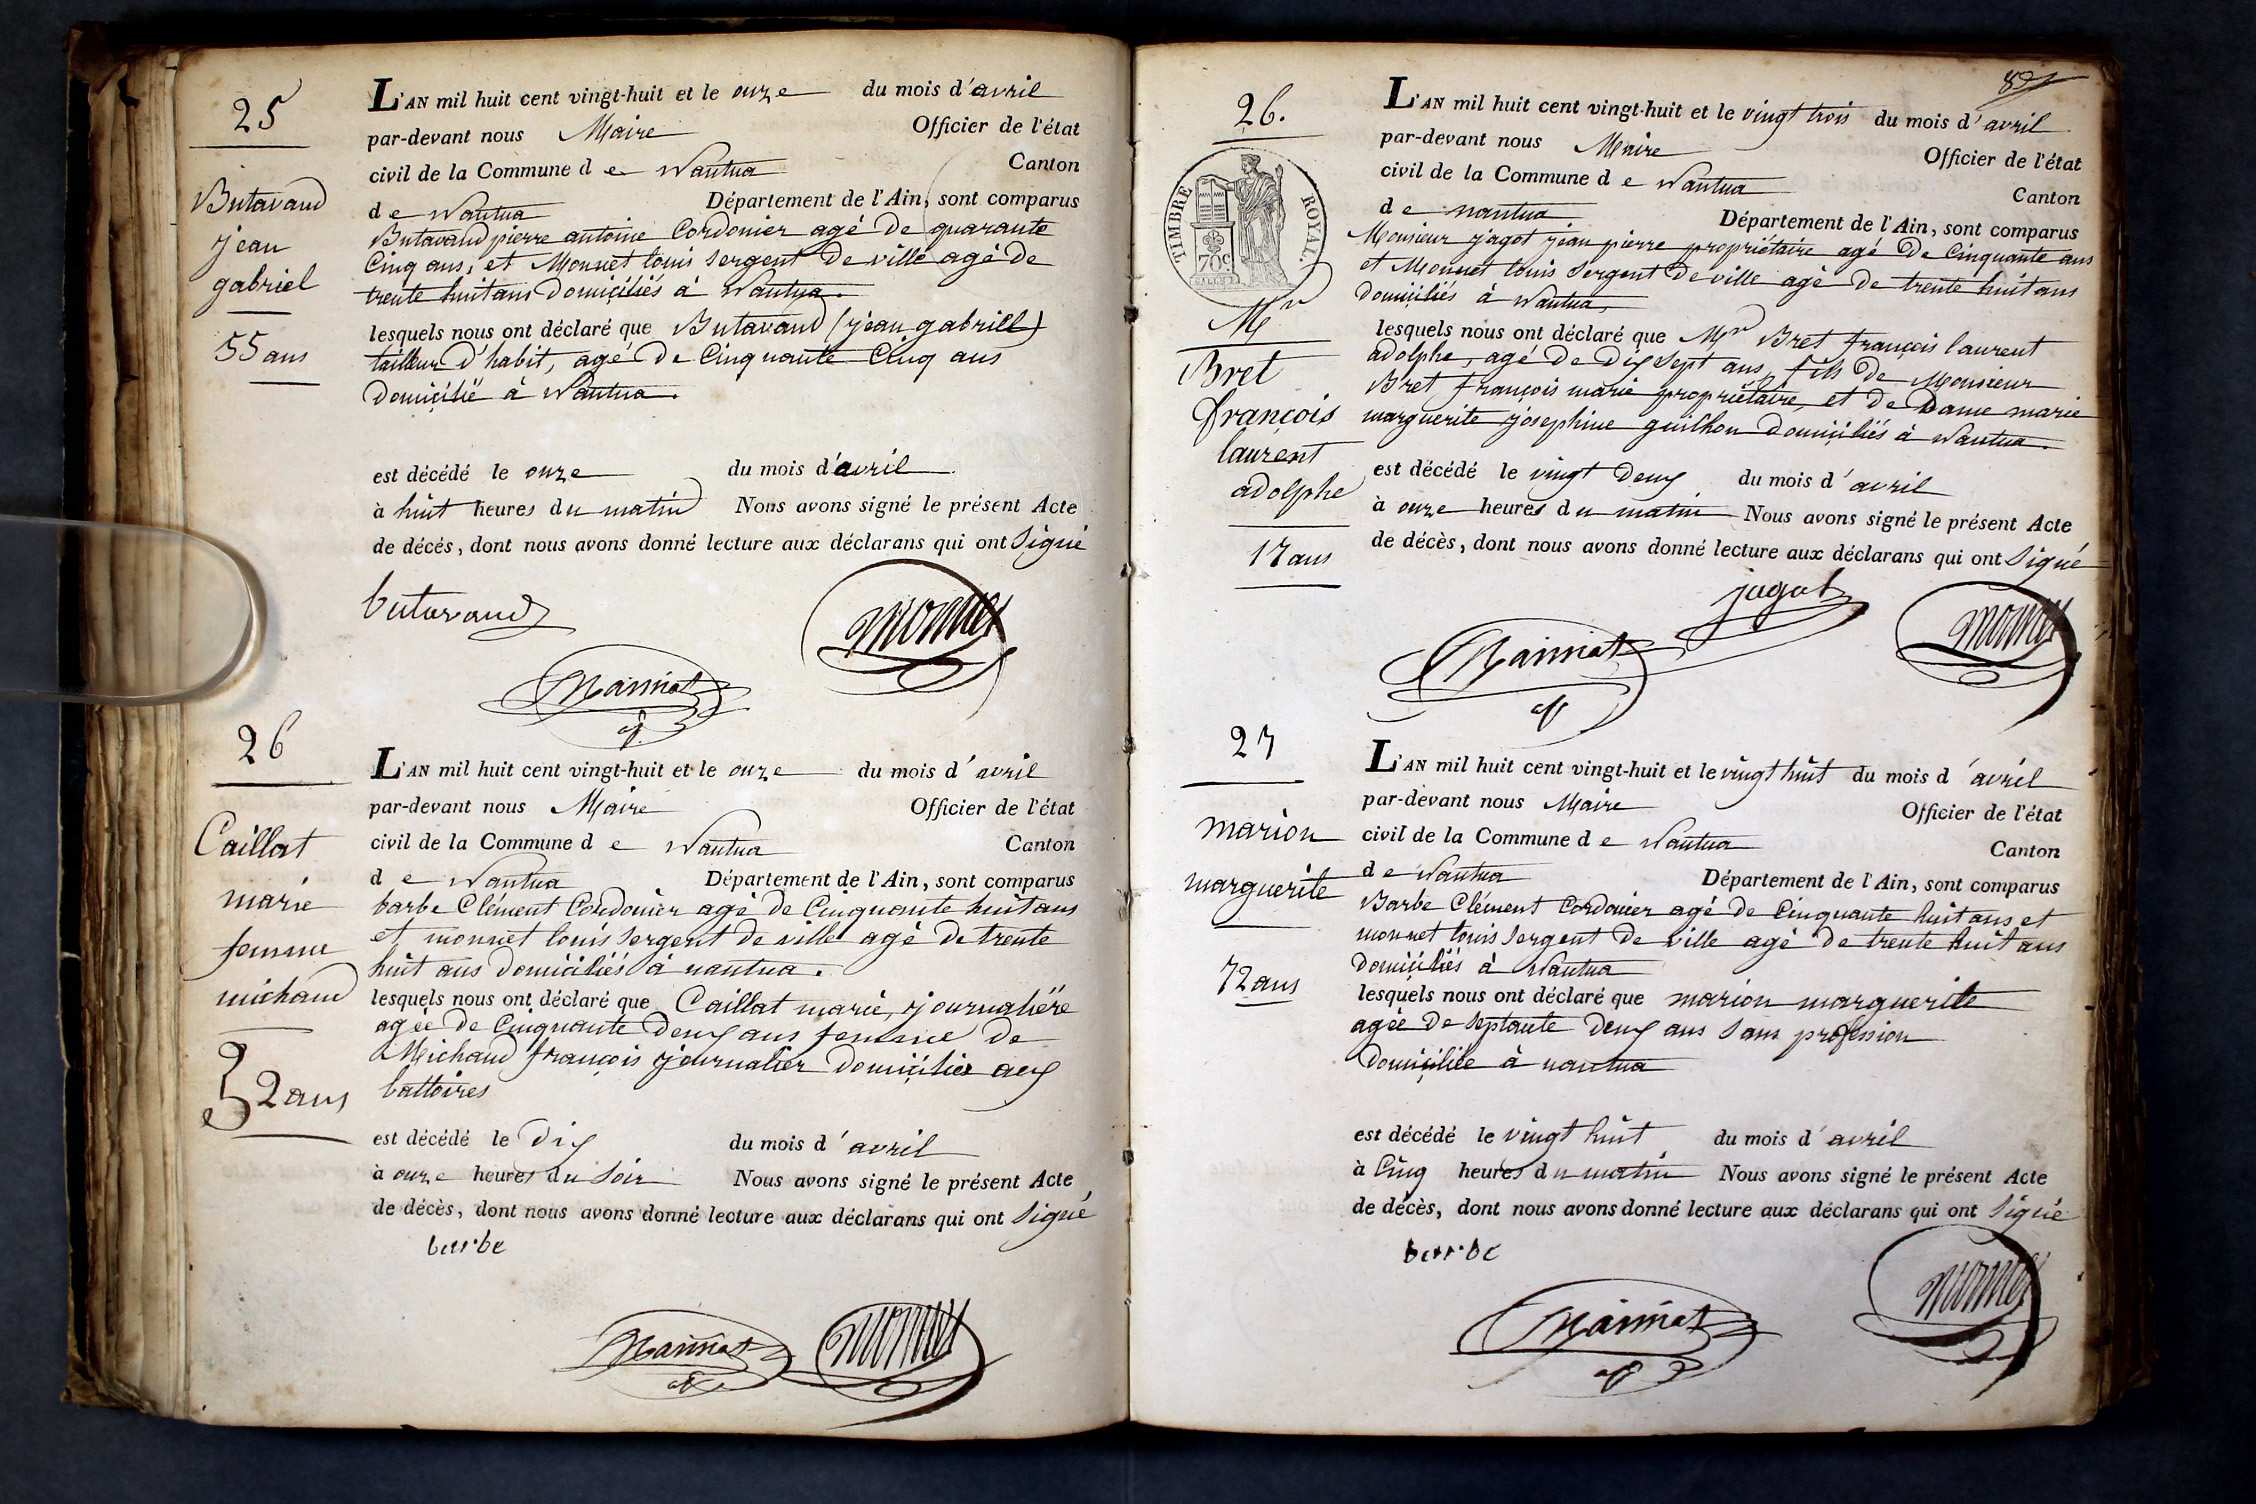 25
Butavand
jean
gabriel
55 ans
L'AN mil huit cent vingt-huit et le onze du mois d'avril
par-devant nous Maire Officier de l'état
civil de la Commune d e Nantua Canton
d e Nantua Département de l'Ain, sont comparus
Butavand pierre antoine Cordonier agé de quarante
Cinq ans, et Monnet louis Sergent de ville agé de
trente huit ans Domiciliés à Nantua.
lesquels nous ont déclaré que Butavand (jean gabriel)
tailleur d'habit, agé de Cinquante Cinq ans
Domicilié à Nantua.
est décédé le onze du mois d'avril
à huit heures du matin Nous avons signé le présent Acte
de décés, dont nous avons donné lecture aux déclarans qui ont Signé
butavand monnet
26
Caillat
marie
femme
michaud
52 ans
L'AN mil huit cent vingt-huit et le onze du mois d'avril
par-devant nous Maire Officier de l'état
civil de la Commune d e Nantua Canton
d e Nantua Département de l'Ain, sont comparus
barbe Clément Cordonier agé de Cinquante huit ans
et monnet louis Sergent de ville agé de trente
huit ans Domiciliés à nantua.
lesquels nous ont déclaré que Caillat marie, journalière
agée de Cinquante deux ans femme de
Michaud françois journalier domiciliés aux
battoires
est décédé le dix du mois d'avril
à onze heures du Soir Nous avons signé le présent Acte
de décès, dont nous avons donné lecture aux déclarans qui ont Signé
barbe
monnet
82
26.
TIMBRE ROYAL.
70c
Mr
Bret
françois
laurent
adolphe
17 ans
L'AN mil huit cent vingt-huit et le vingt trois du mois d'avril
par-devant nous Maire Officier de l'état
civil de la Commune d e Nantua Canton
d e nantua Département de l'Ain, sont comparus
Monsieur jagot jean pierre propriétaire agé de Cinquante ans
et Monnet louis Sergent de ville agé de trente huit ans
domiciliés à Nantua,
lesquels nous ont déclaré que Mr Bret françois laurent
adolphe, agé de Dix Sept ans, fils de Monsieur
Bret françois marie propriétaire, et de Dame marie
marguerite josephine guilhon domiciliés à Nantua.
est décédé le vingt deux du mois d'avril
à onze heures du matin Nous avons signé le présent Acte
de décès, dont nous avons donné lecture aux déclarans qui ont Signé
jagot
monnet
27
marion
marguerite
72 ans
L'AN mil huit cent vingt-huit et le vingt huit du mois d'avril
par-devant nous Maire Officier de l'état
civil de la Commune d e Nantua Canton
d e Nantua Département de l'Ain, sont comparus
Barbe Clément Cordonier agé de Cinquante huit ans et
monnet louis Sergent de ville agé de trente huit ans
Domiciliés à Nantua
lesquels nous ont déclaré que marion marguerite
agée de Septante deux ans Sans profession
Domiciliée à nantua
est décédé le vingt huit du mois d'avril
à Cinq heures du matin Nous avons signé le présent Acte
de décès, dont nous avons donné lecture aux déclarans qui ont Signé
barbe
monnet